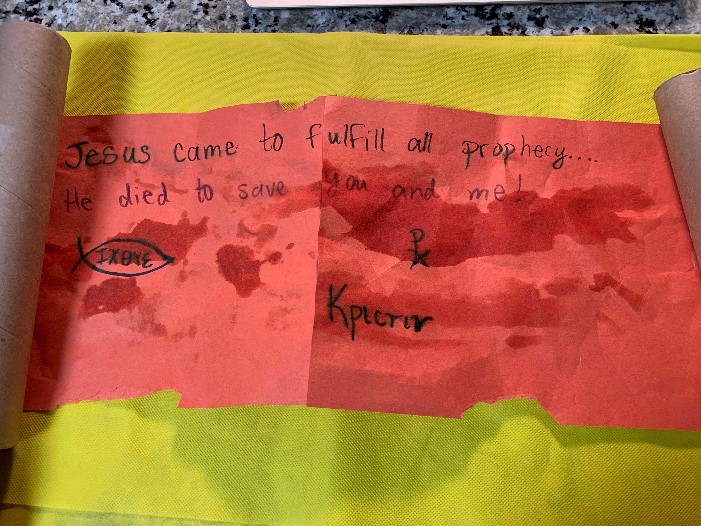 Jesus came to fulfill all prophecy....
He died to save you and me!
ΙΧΘΥΣ